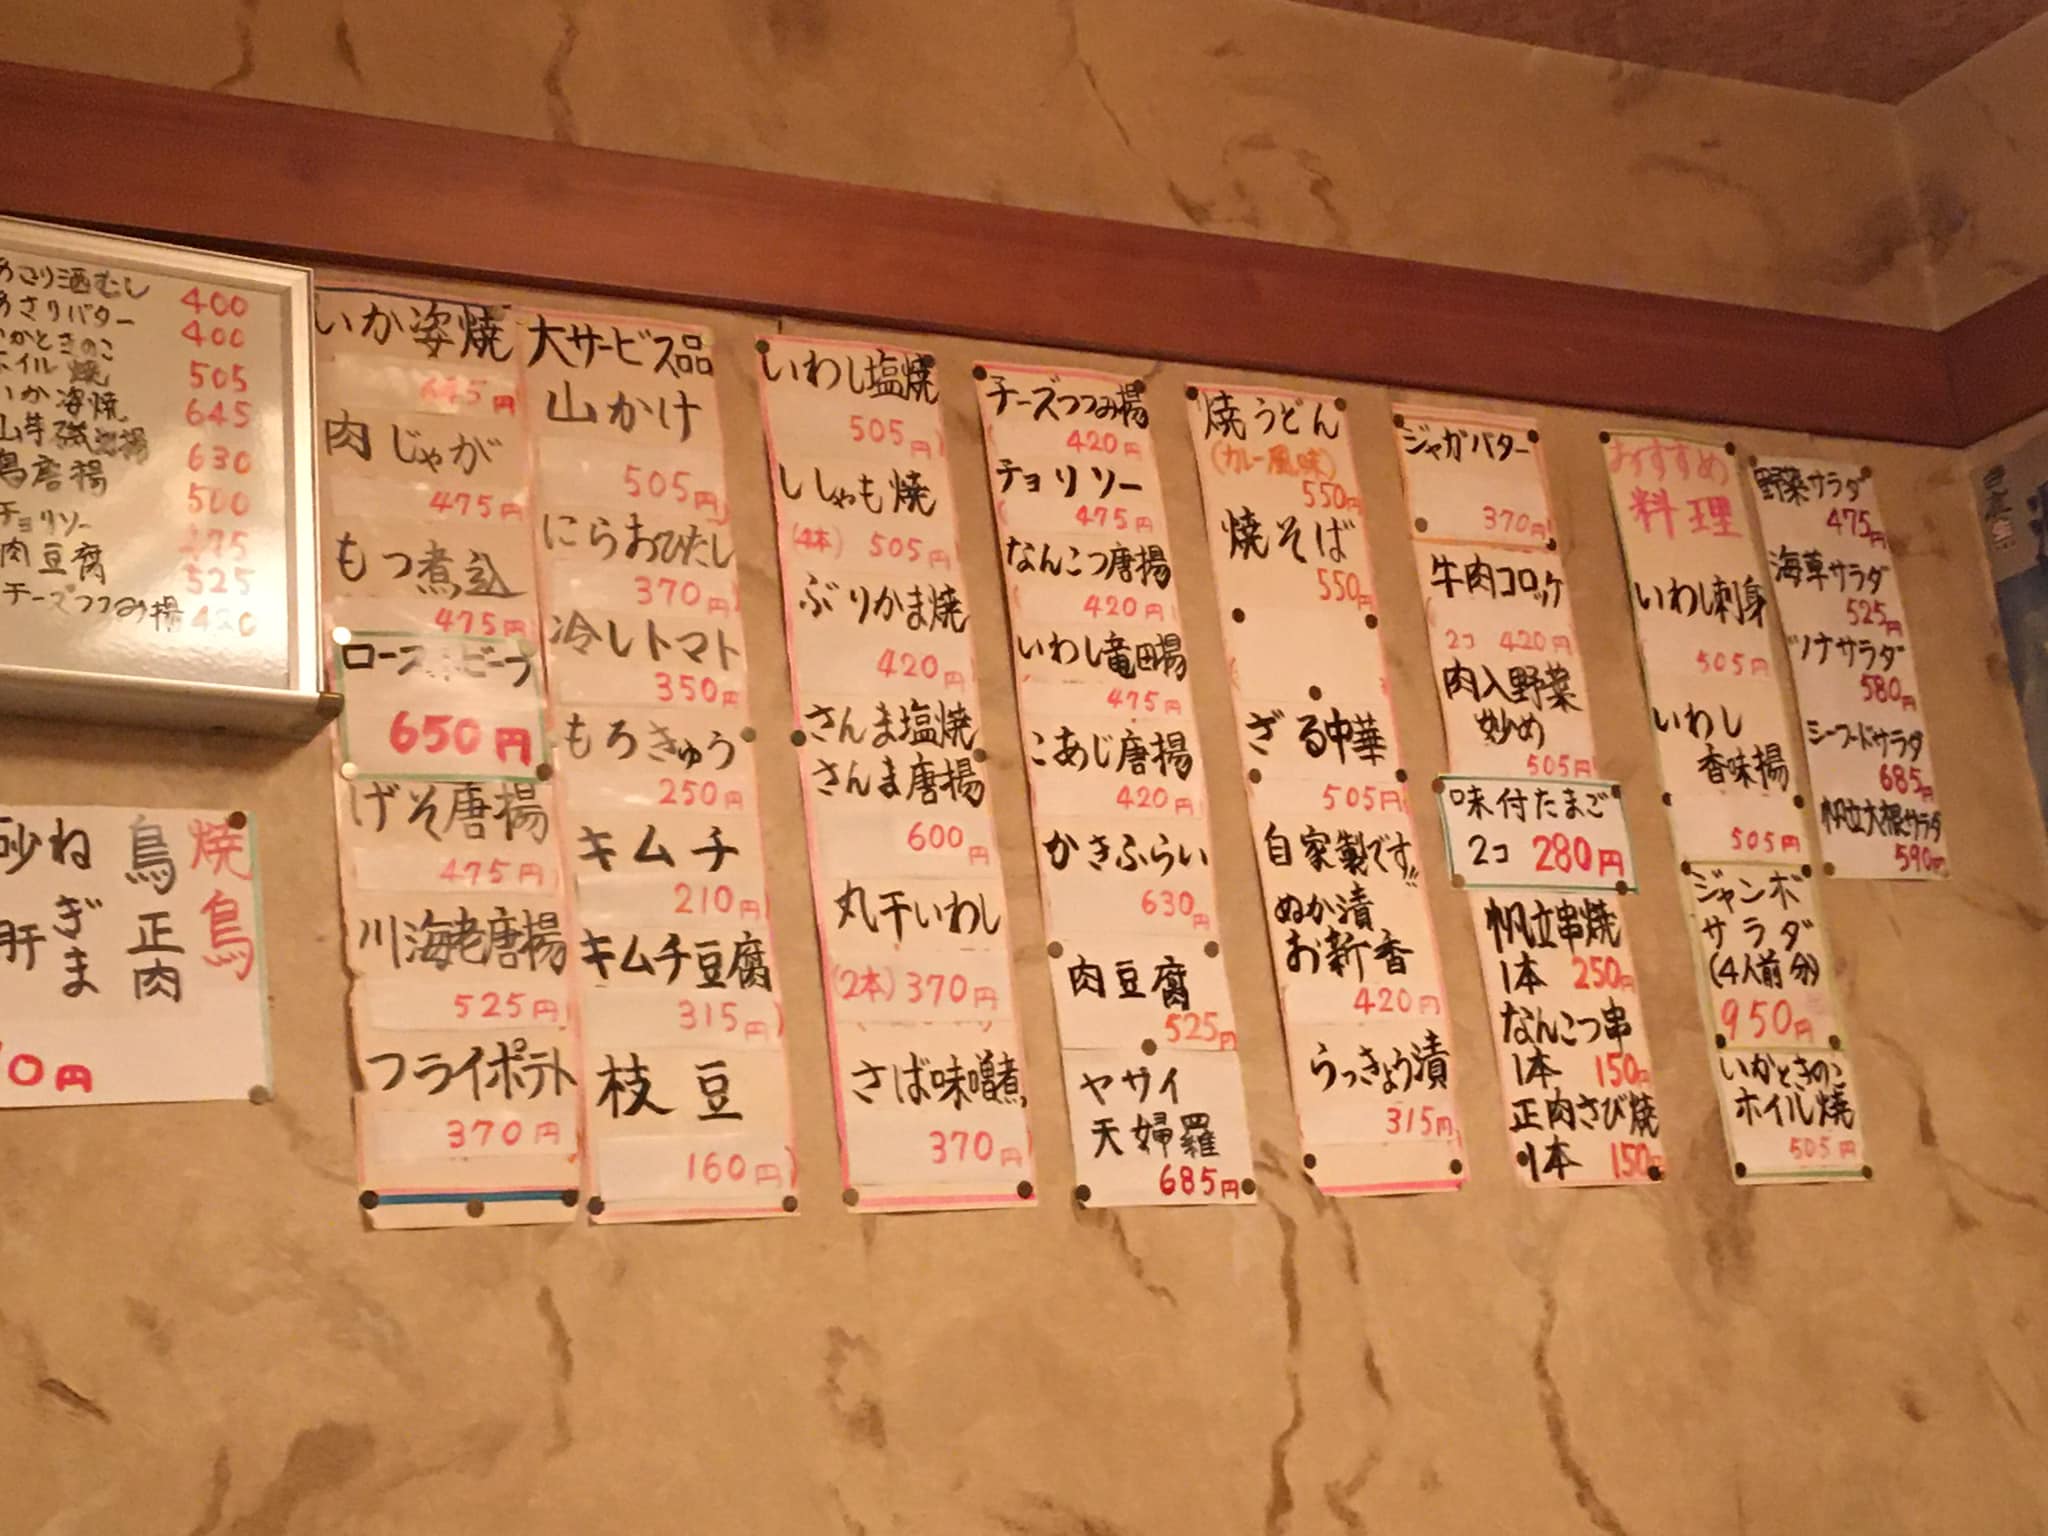 あさり酒むし 400
あさりバター 400
いかときのこ
ホイル焼 505
いか姿焼 645
山芋磯辺揚 630
鳥唐揚 500
チョリソー 475
肉豆腐 525
チーズつつみ揚 420
焼鳥
鳥正肉
ねぎま
砂肝
0円
いか姿焼
645円
肉じゃが
475円
もつ煮込
475円
ローストビーフ
650円
げそ唐揚
475円
川海老唐揚
525円
フライポテト
370円
大サービス品
山かけ
505円
にらおひたし
370円
冷しトマト
350円
もろきゅう
250円
キムチ
210円
キムチ豆腐
315円
枝豆
160円
いわし塩焼
505円
ししゃも焼
(4本) 505円
ぶりかま焼
420円
さんま塩焼
さんま唐揚
600円
丸干いわし
(2本) 370円
さば味噌煮
370円
チーズつつみ揚
420円
チョリソー
475円
なんこつ唐揚
420円
いわし竜田揚
475円
こあじ唐揚
420円
かきふらい
630円
肉豆腐
525円
ヤサイ
天婦羅
685円
焼うどん
(カレー風味)
550円
焼そば
550円
ざる中華
505円
自家製です!!
ぬか漬
お新香
420円
らっきょう漬
315円
ジャガバター
370円
牛肉コロッケ
2コ 420円
肉入野菜
炒め
505円
味付たまご
2コ 280円
帆立串焼
1本 250円
なんこつ串
1本 150円
正肉さび焼
1本 150円
おすすめ
料理
いわし刺身
505円
いわし
香味揚
505円
ジャンボ
サラダ
(4人前分)
950円
いかときのこ
ホイル焼
505円
野菜サラダ
475円
海草サラダ
525円
ツナサラダ
580円
シーフードサラダ
685円
帆立大根サラダ
590円